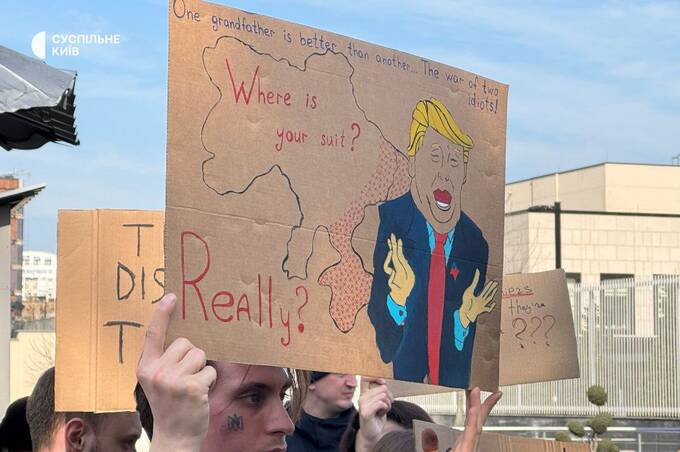 СУСПІЛЬНЕ
КИЇВ
One grandfather is better than another... The war of two
idiots!
Where is
your suit?
Really?
T
DIS
T
???